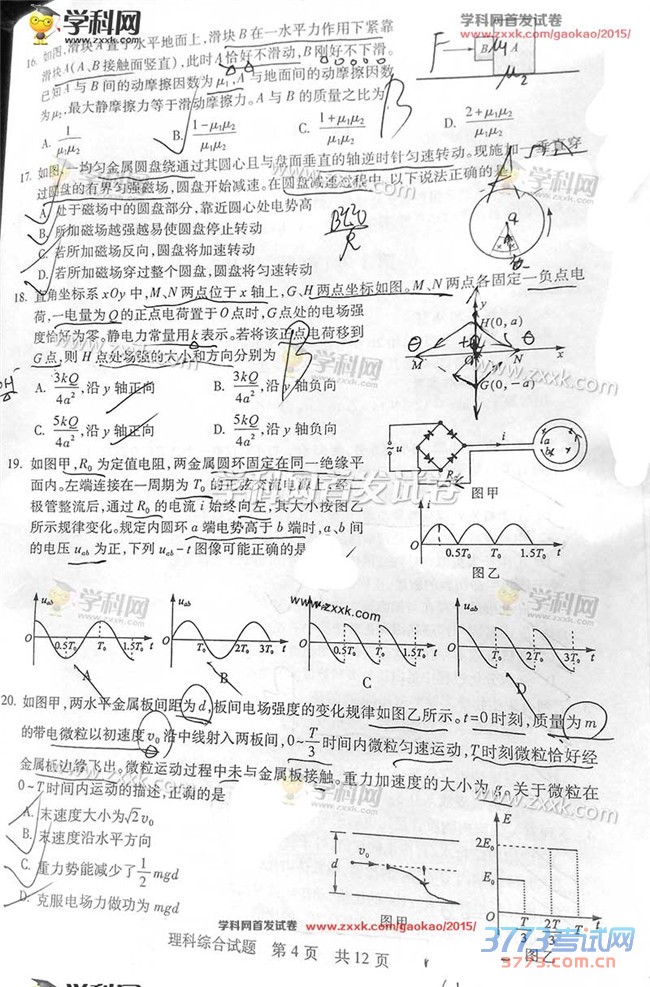 学科网
www.zxxk.com
学科网首发试卷
www.zxxk.com/gaokao/2015/
16. 如图,滑块A置于水平地面上,滑块B在一水平力作用下紧靠
滑块A(A、B接触面竖直),此时A恰好不滑动,B刚好不下滑。
已知A与B间的动摩擦因数为μ₁,A与地面间的动摩擦因数
为μ₂,最大静摩擦力等于滑动摩擦力。A与B的质量之比为
A. 1/μ₁μ₂ B. 1-μ₁μ₂/μ₁μ₂ C. 1+μ₁μ₂/μ₁μ₂ D. 2+μ₁μ₂/μ₁μ₂
F B A μ₁ μ₂
17. 如图,一均匀金属圆盘绕通过其圆心且与盘面垂直的轴逆时针匀速转动。现施加一垂直穿
过圆盘的有界匀强磁场,圆盘开始减速。在圆盘减速过程中,以下说法正确的是
A. 处于磁场中的圆盘部分,靠近圆心处电势高
B. 所加磁场越强越易使圆盘停止转动
C. 若所加磁场反向,圆盘将加速转动
D. 若所加磁场穿过整个圆盘,圆盘将匀速转动
18. 直角坐标系xOy中,M、N两点位于x轴上,G、H两点坐标如图。M、N两点各固定一负点电
荷,一电量为Q的正点电荷置于O点时,G点处的电场强
度恰好为零。静电力常量用k表示。若将该正点电荷移到
G点,则H点处场强的大小和方向分别为
A. 3kQ/4a²,沿y轴正向 B. 3kQ/4a²,沿y轴负向
C. 5kQ/4a²,沿y轴正向 D. 5kQ/4a²,沿y轴负向
y
H(0,a)
M N x
G(0,-a)
19. 如图甲,R₀为定值电阻,两金属圆环固定在同一绝缘平
面内。左端连接在一周期为T₀的正弦交流电源上,经二
极管整流后,通过R₀的电流i始终向左,其大小按图乙
所示规律变化。规定内圆环a端电势高于b端时,a、b间
的电压uab为正,下列uab-t图像可能正确的是
u i a b
图甲
i
O 0.5T₀ T₀ 1.5T₀ t
图乙
学科网
www.zxxk.com
uab uab uab uab
O 0.5T₀ T₀ 1.5T₀ t
O T₀ 2T₀ 3T₀ t
O 0.5T₀ T₀ 1.5T₀ t
O T₀ 2T₀ 3T₀ t
A B C D
20. 如图甲,两水平金属板间距为d,板间电场强度的变化规律如图乙所示。t=0时刻,质量为m
的带电微粒以初速度v₀沿中线射入两板间,0~T/3时间内微粒匀速运动,T时刻微粒恰好经
金属板边缘飞出。微粒运动过程中未与金属板接触。重力加速度的大小为g。关于微粒在
0~T时间内运动的描述,正确的是
A. 末速度大小为√2v₀
B. 末速度沿水平方向
C. 重力势能减少了1/2mgd
D. 克服电场力做功为mgd
d v₀
图甲
E
2E₀
E₀
O T/3 2T/3 T t
图乙
学科网首发试卷 www.zxxk.com/gaokao/2015/
理科综合试题 第4页 共12页
3773考试网
3773.com.cn